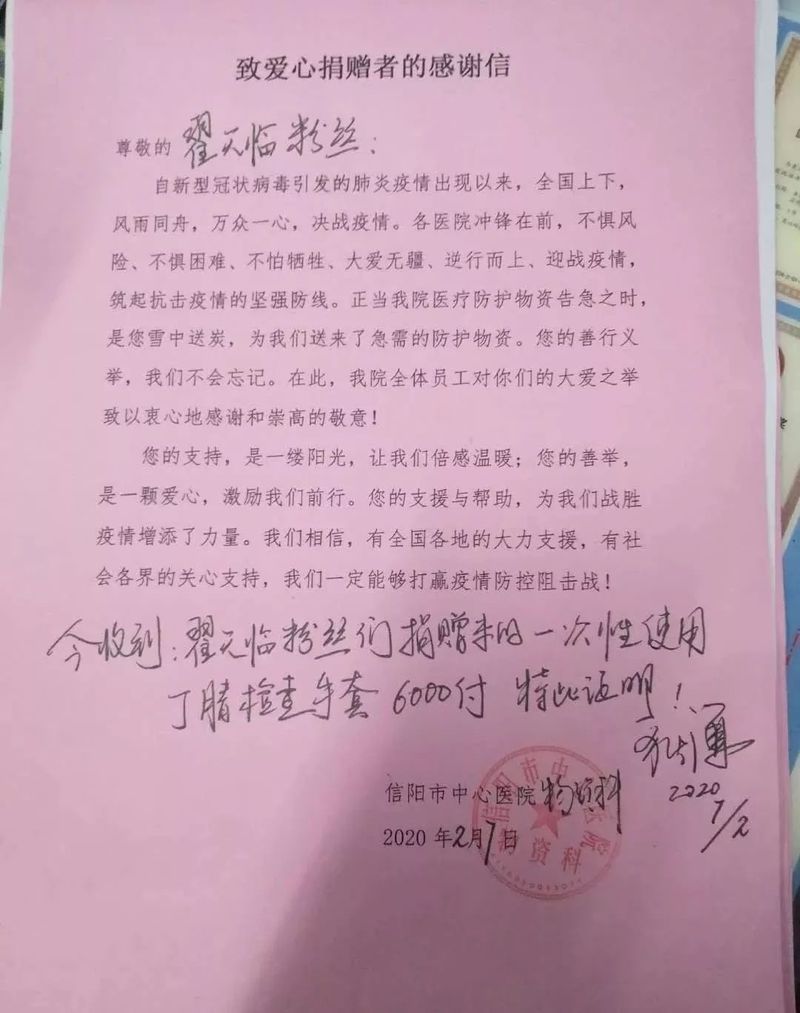 致爱心捐赠者的感谢信
尊敬的 翟天临粉丝:
自新型冠状病毒引发的肺炎疫情出现以来，全国上下，
风雨同舟，万众一心，决战疫情。各医院冲锋在前，不惧风
险、不惧困难、不怕牺牲、大爱无疆、逆行而上、迎战疫情，
筑起抗击疫情的坚强防线。正当我院医疗防护物资告急之时，
是您雪中送炭，为我们送来了急需的防护物资。您的善行义
举，我们不会忘记。在此，我院全体员工对你们的大爱之举
致以衷心地感谢和崇高的敬意！
您的支持，是一缕阳光，让我们倍感温暖；您的善举，
是一颗爱心，激励我们前行。您的支援与帮助，为我们战胜
疫情增添了力量。我们相信，有全国各地的大力支援，有社
会各界的关心支持，我们一定能够打赢疫情防控阻击战！
今收到:翟天临粉丝们捐赠来的一次性使用
丁腈检查手套 6000付 特此证明！
信阳市中心医院物资科
2020 年2月7日
2020
7/2
信阳市中心医院
物资科